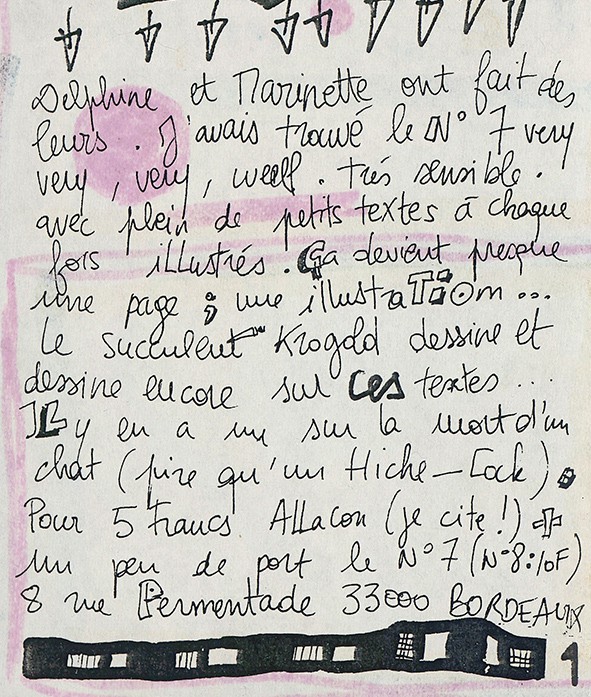 Delphine et Marinette ont fait des
leurs. J'avais trouvé le N° 7 very
very, very, well. très sensible.
avec plein de petits textes à chaque
fois illustrés. Ça devient presque
une page ; une illustration...
Le succulent Krogold dessine et
dessine encore sur ces textes...
Il y en a un sur la mort d'un
chat (pire qu'un Hiche-Cock).
Pour 5 Francs Allacon (je cite!) +
un peu de port le N°7 (N°8:10F)
8 rue Permentade 33000 BORDEAUX
1